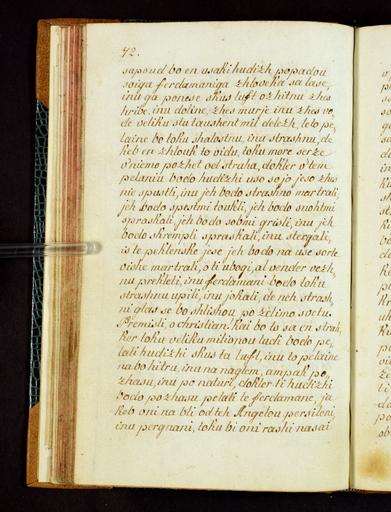 72.
sapoud bo en usaki hudizh popadou
soiga ferdamaniga zhloveka sa lase,
inu ga ponese skus luft ozhitnu zhes
hribe inu doline, zhes murje inu zhes vo,
de veliku stu taushent mil delezh, te to pe,
laine bo toku shalostnu, inu strashnu, de
keb en zhlouk to vidu, toku more serze
v'niemo pozhet od straha, dokler v'tem
pelaniu bodo hudizhi uso sojo jeso zhes
nie spustli, inu jeh bodo strashno martrali,
jeh bodo spestmi toukli, jeh bodo snohtmi
spraskali, jeh bodo sobmi grisli, inu jeh
bodo skrempli spraskali, inu stergali,
is te peklenske jese jeh bodo na use sorte
vishe martrali, o ti ubogi, al vender vezh,
nu prekleti, inu ferdamani bodo toku
strashnu upili, inu jokali, de neh strash,
ni glas se bo shlishou po zelimo svetu.
Premisli, o christian. Kai bo to sa en strah,
ker toku veliku milionou ludi bodo pe,
lali hudizhi skus ta luft, inu to pelaine
na bo hitru, inu na naglem, ampak po,
zhasu, inu po naturi, dokler ti hudizhi
bodo pozhasu pelali te ferdamane, ja
keb oni na bli od teh Angelou persileni,
inu pergnani, toku bi oni rashi nasai